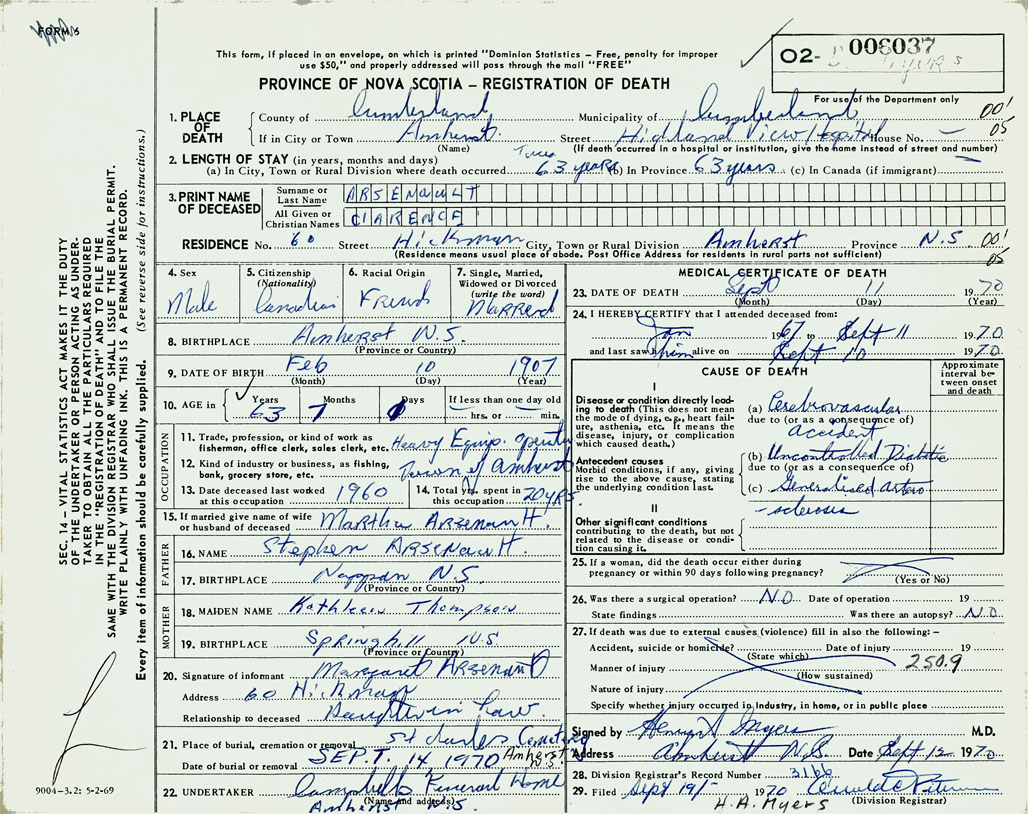 FORM 5
This form, if placed in an envelope, on which is printed "Dominion Statistics – Free, penalty for improper
use $50," and properly addressed will pass through the mail "FREE"
PROVINCE OF NOVA SCOTIA – REGISTRATION OF DEATH
02- 006037
For use of the Department only
SEC. 14 – VITAL STATISTICS ACT MAKES IT THE DUTY
OF THE UNDERTAKER OR PERSON ACTING AS UNDER-
TAKER TO OBTAIN ALL THE PARTICULARS REQUIRED
IN THE "REGISTRATION OF DEATH" AND TO FILE THE
SAME WITH THE DIVISION REGISTRAR WHO SHALL ISSUE THE BURIAL PERMIT.
WRITE PLAINLY WITH UNFADING INK. THIS IS A PERMANENT RECORD.
Every item of information should be carefully supplied. (See reverse side for instructions.)
1. PLACE OF DEATH
County of Cumberland Municipality of Cumberland 001
If in City or Town Amherst Street Highland View Hospital House No. – 05
(Name) (If death occurred in a hospital or institution, give the name instead of street and number)
2. LENGTH OF STAY (in years, months and days)
(a) In City, Town or Rural Division where death occurred Town 63 years (b) In Province 63 years (c) In Canada (if immigrant) –
3. PRINT NAME OF DECEASED
Surname or Last Name ARSENAULT
All Given or Christian Names CLARENCE
RESIDENCE No. 60 Street Hickman City, Town or Rural Division Amherst Province N.S. 001
(Residence means usual place of abode. Post Office Address for residents in rural parts not sufficient) 05
4. Sex Male
5. Citizenship (Nationality) Canadian
6. Racial Origin French
7. Single, Married, Widowed or Divorced (write the word) Married
8. BIRTHPLACE Amherst N.S.
(Province or Country)
9. DATE OF BIRTH Feb 10 1907
(Month) (Day) (Year)
10. AGE in Years 63 Months 7 Days If less than one day old hrs. or min.
OCCUPATION
11. Trade, profession, or kind of work as fisherman, office clerk, sales clerk, etc. Heavy Equip. operator
12. Kind of industry or business, as fishing, bank, grocery store, etc. Town of Amherst
13. Date deceased last worked at this occupation 1960
14. Total yrs. spent in this occupation 20 yrs.
15. If married give name of wife or husband of deceased Martha Arsenault.
FATHER
16. NAME Stephen Arsenault.
17. BIRTHPLACE Nappan N.S.
(Province or Country)
MOTHER
18. MAIDEN NAME Kathleen Thompson
19. BIRTHPLACE Springhill N.S
(Province or Country)
20. Signature of informant Margaret Arsenault
Address 60 Hickman
Relationship to deceased Daughter in law.
21. Place of burial, cremation or removal St Charles Cemetery
Date of burial or removal SEPT. 14, 1970 Amherst N.S.
22. UNDERTAKER Campbells Funeral Home
(Name and address)
Amherst N.S.
9004–3.2: 5-2-69
MEDICAL CERTIFICATE OF DEATH
23. DATE OF DEATH Sept 11 1970
(Month) (Day) (Year)
24. I HEREBY CERTIFY that I attended deceased from:
Jan 1967 to Sept 11 1970
and last saw him alive on Sept 10 1970.
CAUSE OF DEATH
Approximate interval between onset and death
I
Disease or condition directly leading to death (This does not mean the mode of dying, e.g., heart failure, asthenia, etc. It means the disease, injury, or complication which caused death.
(a) Cerebrovascular
due to (or as a consequence of)
accident
Antecedent causes
Morbid conditions, if any, giving rise to the above cause, stating the underlying condition last.
(b) Uncontrolled Diabetic
due to (or as a consequence of)
(c) Generalised Arterio
-sclerosis
II
Other significant conditions
contributing to the death, but not related to the disease or condition causing it.
25. If a woman, did the death occur either during
pregnancy or within 90 days following pregnancy?
(Yes or No)
26. Was there a surgical operation? NO Date of operation 19
State findings Was there an autopsy? NO.
27. If death was due to external causes (violence) fill in also the following: –
Accident, suicide or homicide? Date of injury 19
(State which)
Manner of injury 250.9
(How sustained)
Nature of injury
Specify whether injury occurred in Industry, in home, or in public place
Signed by Henry A Myers M.D.
Address Amherst N.S Date Sept 12 1970
28. Division Registrar's Record Number 3166
29. Filed Sept 19/- 1970
(Division Registrar)
H.A. Myers